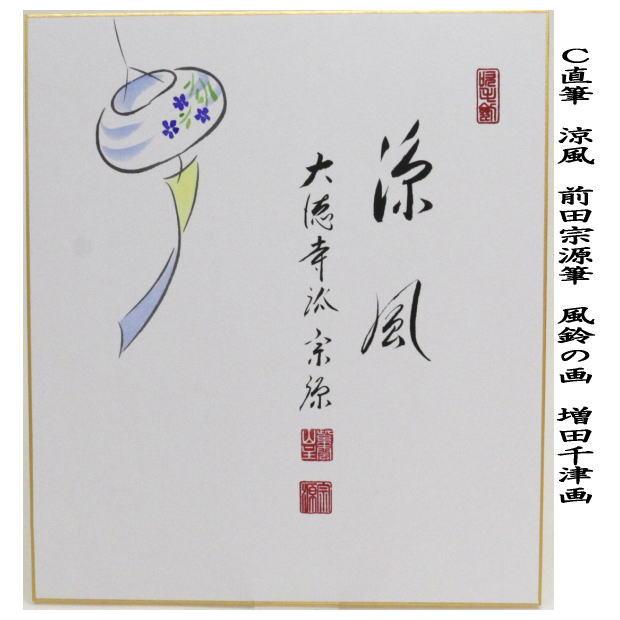 C直筆 涼風 前田宗源筆 風鈴の画 増田千津画
涼風
大徳寺派 宗源
宗源